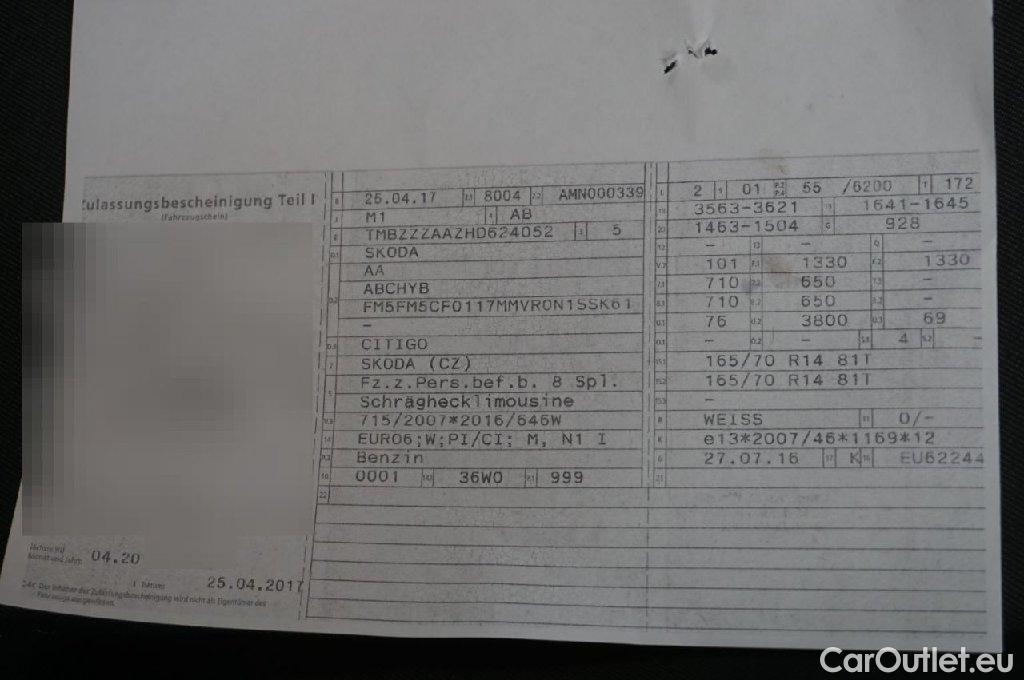 Zulassungsbescheinigung Teil I
(Fahrzeugschein)
04.20
25.04.2017
25.04.17 8004 AMN000339
M1 AB
TMBZZZAAZHD624052 5
SKODA
AA
ABCHYB
FM5FM5CF0117MMVR0N1SSK61
-
CITIGO
SKODA (CZ)
Fz.z.Pers.bef.b. 8 Spl.
Schräghecklimousine
715/2007*2016/646W
EURO6;W;PI/CI; M, N1 I
Benzin
0001 36W0 999
22
2 01 55 /6200 172
3563-3621 1641-1645
1463-1504 928
- - -
101 1330 1330
710 650 -
710 650 -
76 3800 69
- - 4 -
165/70 R14 81T
165/70 R14 81T
-
WEISS 0/-
e13*2007/46*1169*12
27.07.16 K EU62244
CarOutlet.eu